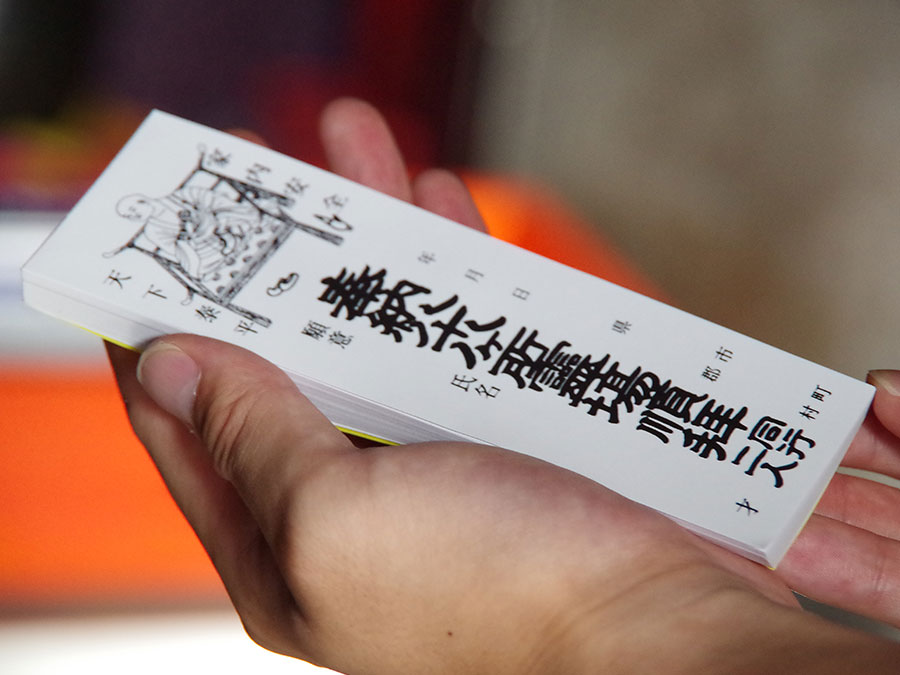 家内安全
年月日
県
市
郡
町
村
奉納八十八ヶ所靈場順拝同行二人
天下泰平
願意
氏名
才